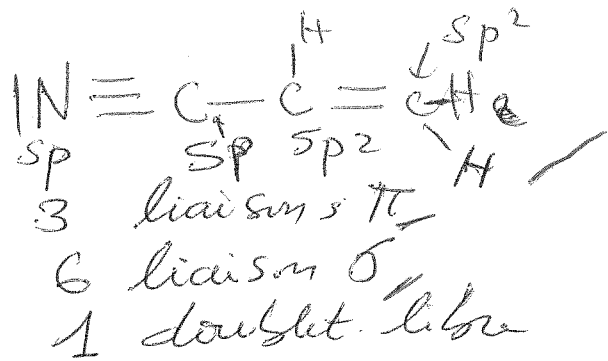 H sp2
|N ≡ C — C = C-H
sp sp sp2 H
3 liaisons π
6 liaison σ
1 doublet. libre